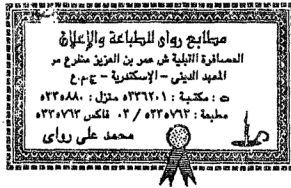 مطابع رواى للطباعة والإعلان
العصافرة القبلية ش عمر بن العزيز متفرع من
المعهد الدينى - الإسكندرية - ج.م.ع
ت : مكتبة : ٥٣٣٦٢٠١ منزل : ٥٣٥٨٨٠
مطبعة : ٥٣٥٧٦٣ / ٠٣ فاكس ٥٣٥٧٦٣
محمد على رواى